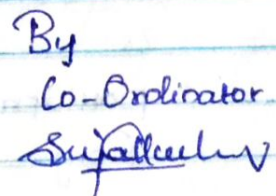 By
Co-Ordinator